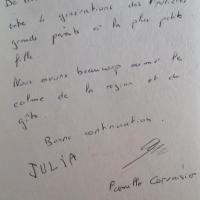 entre 4 générations des
grands parents à la plus petite
fille.
Nous avons beaucoup aimer le
calme de la region et du
gîte.
Bonne continuation.
JULIA
Famille